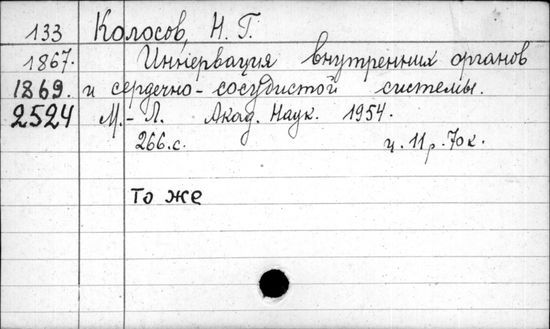 133 Колосов, Н. Г.
1867. Иннервация внутренних органов
1869. и сердечно-сосудистой системы.
2524 М.-Л. Акад. Наук. 1954.
266.с. ц. 11р. 70к.
То же